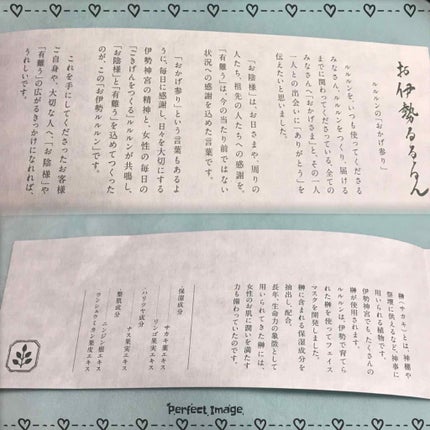 お伊勢るるるん
ルルルンの「おかげ参り」
ルルルンをいつも使ってくださる
みなさん、ルルルンをつくり、届ける
までに関わってくださっている、全ての
みなさんへ「おかげさま」と、その一人
一人との出会いに「ありがとう」を
伝えたいと思いました。
「お陰様」は、お日さまや、周りの
人たち、祖先の人たちへの感謝を、
「有難う」は、今の当たり前ではない
状況への感謝を込めた言葉です。
「おかげ参り」という言葉もあるよ
うに、毎日に感謝し、日々を大切にする
伊勢神宮の精神と、女性の毎日の
「ごきげんをつくる」ルルルンが共鳴し、
「お陰様」と「有難う」を込めてつくった
のが、この「お伊勢ルルルン」です。
これを手にしてくださったお客様
ご自身や、大切な人へ、「お陰様」や
「有難う」の広がるきっかけになれれば、
うれしいです。
榊(サカキ)とは、神棚や
祭壇に供えるなど、神事に
用いられる植物です。
伊勢神宮でもたくさんの
榊が使用されます。
ルルルンは、伊勢で育てら
れた榊を使ってフェイス
マスクを開発しました。
榊に含まれる保湿成分を
抽出し、配合。
長年、生命力の象徴として
用いられてきた榊には、
女性のお肌に潤いを満たす
力も備わっていたのです。
保湿成分
サカキ葉エキス
リンゴ果実エキス
ハリツヤ成分
ナス果実エキス
整肌成分
ニンジン根エキス
ウンシュウミカン果皮エキス
Perfect Image.